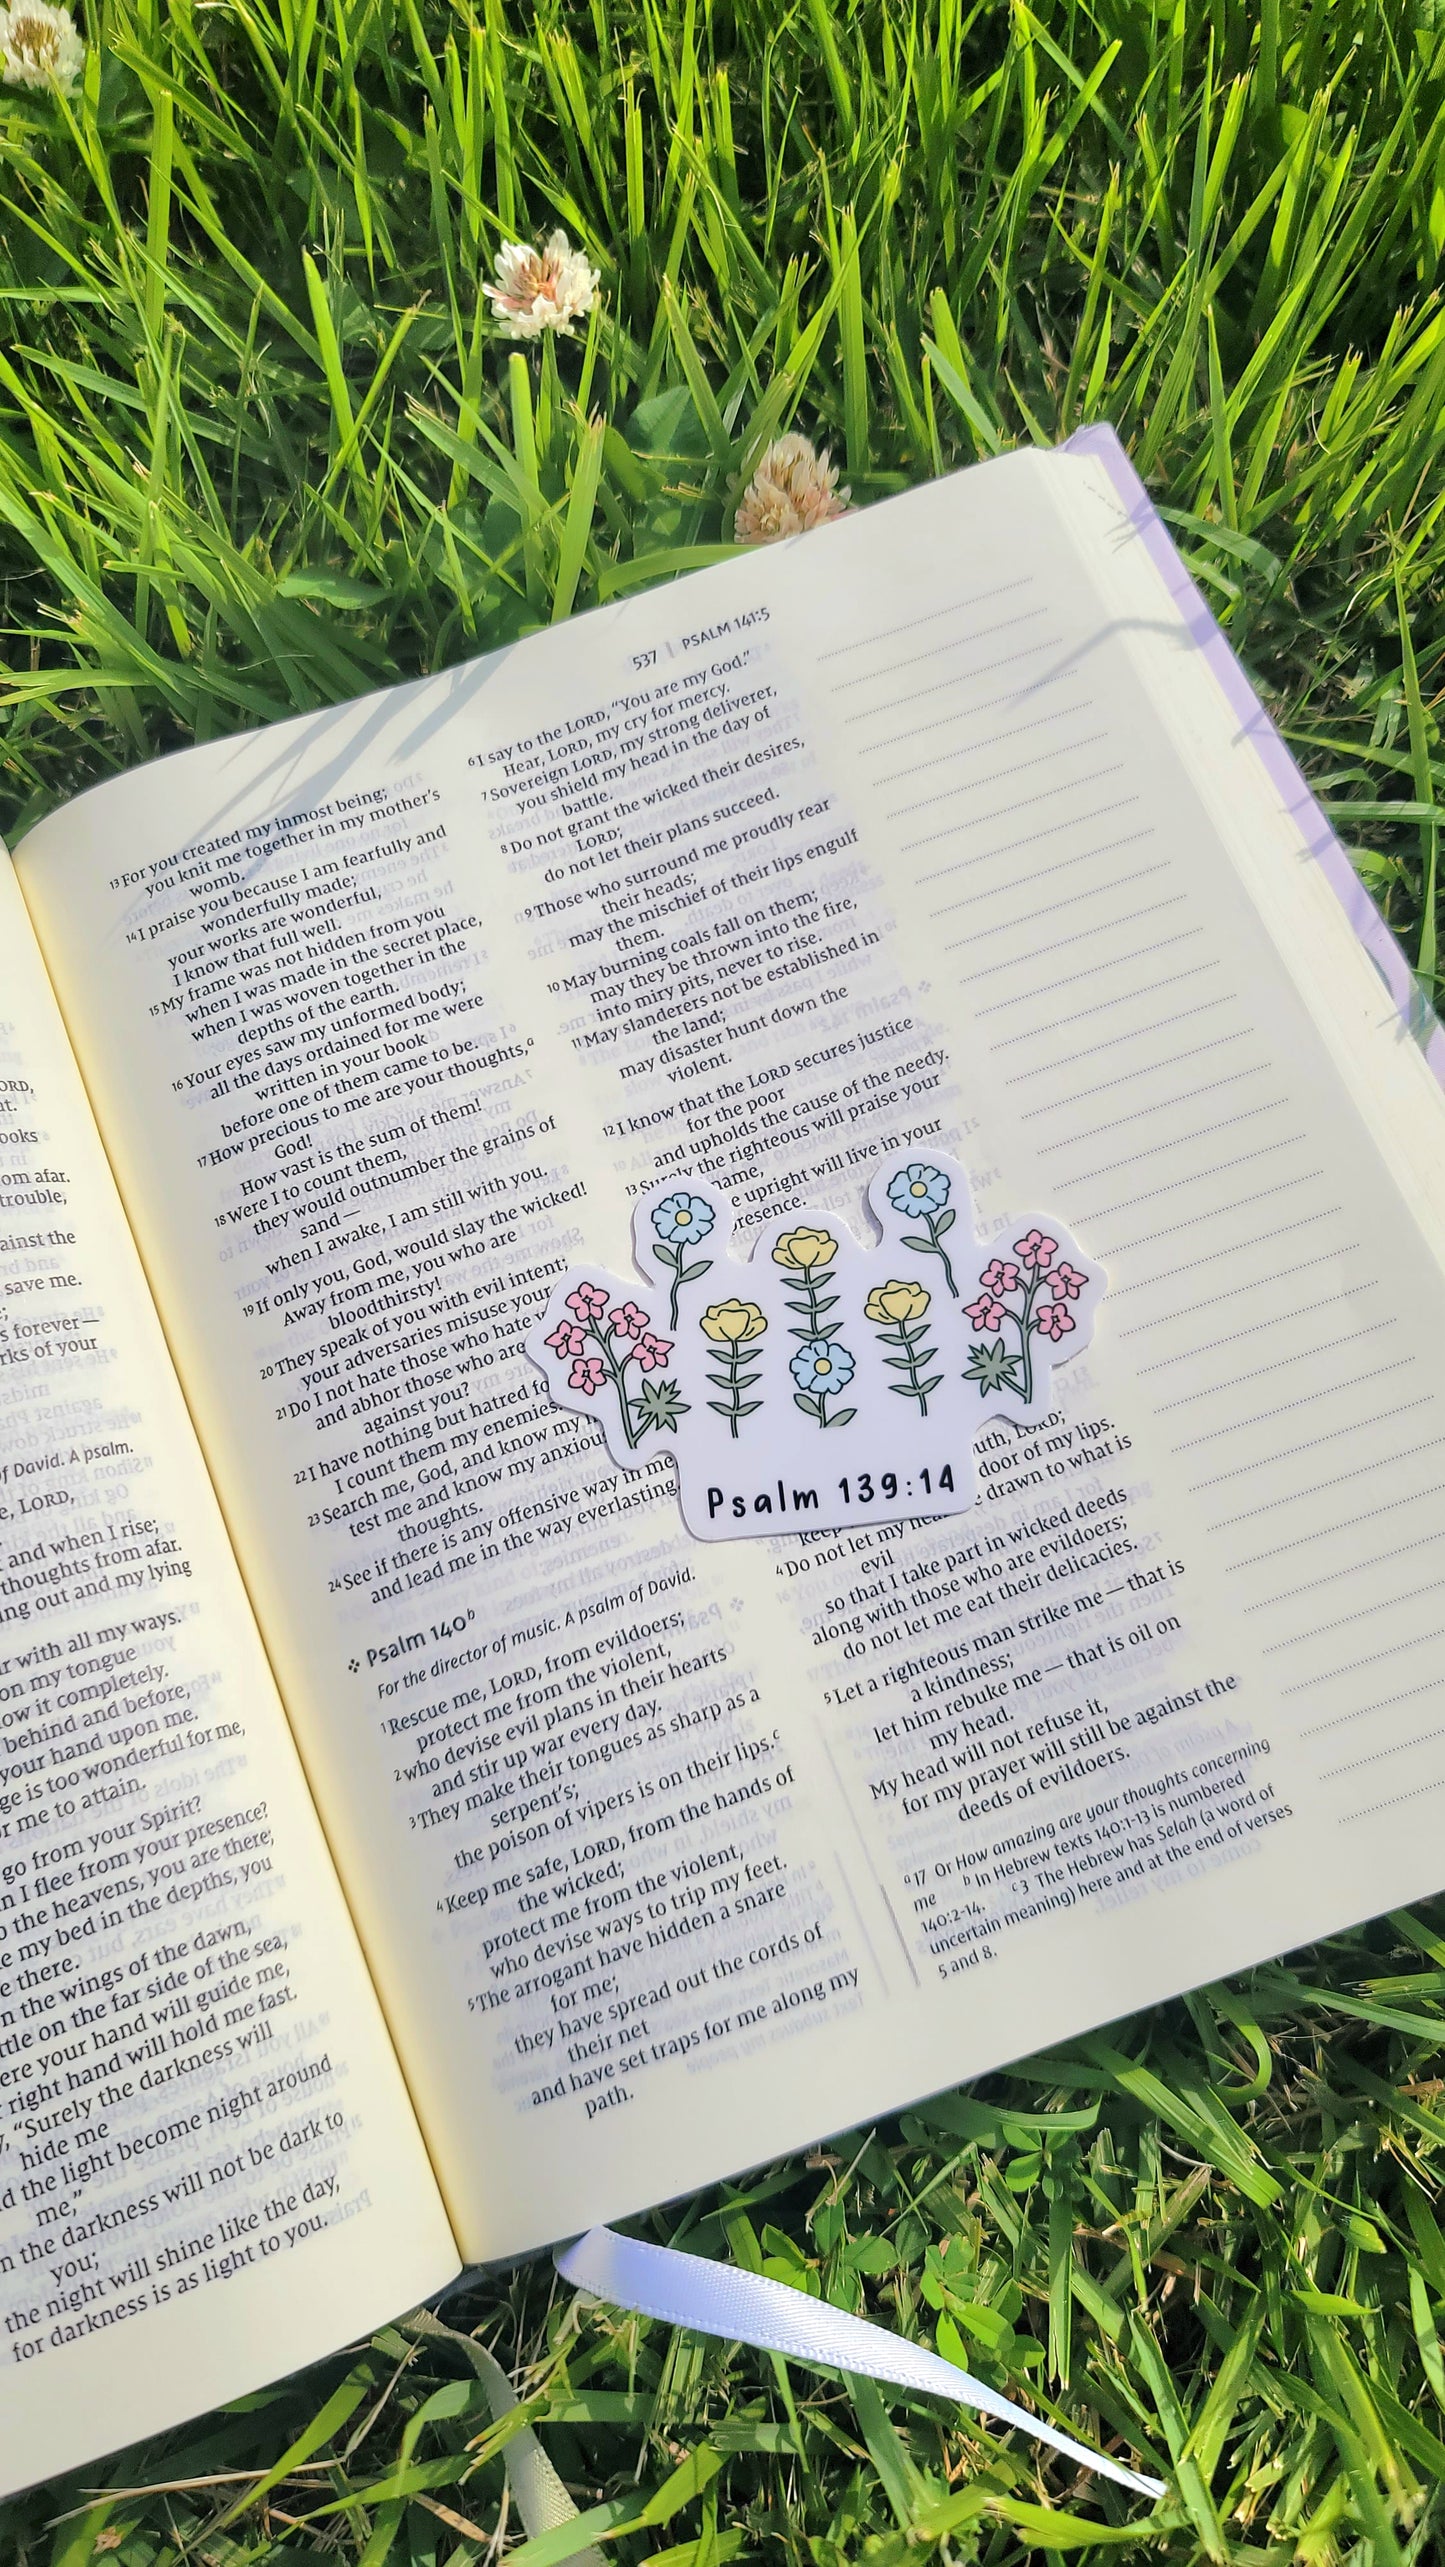 ORD,
ooks
om afar.
trouble,
ainst the
save me.
s forever—
rks of your
of David. A psalm.
e, LORD,
and when I rise;
thoughts from afar.
ing out and my lying
r with all my ways.
on my tongue
ow it completely.
behind and before,
your hand upon me.
ge is too wonderful for me,
or me to attain.
go from your Spirit?
n I flee from your presence?
o the heavens, you are there;
e my bed in the depths, you
e there.
n the wings of the dawn,
ttle on the far side of the sea,
ere your hand will guide me,
right hand will hold me fast.
, “Surely the darkness will
hide me
d the light become night around
me,”
n the darkness will not be dark to
you;
the night will shine like the day,
for darkness is as light to you.
537 | PSALM 141:5
13 For you created my inmost being;
you knit me together in my mother’s
womb.
14 I praise you because I am fearfully and
wonderfully made;
your works are wonderful,
I know that full well.
15 My frame was not hidden from you
when I was made in the secret place,
when I was woven together in the
depths of the earth.
16 Your eyes saw my unformed body;
all the days ordained for me were
written in your book
before one of them came to be.
17 How precious to me are your thoughts,a
God!
How vast is the sum of them!
18 Were I to count them,
they would outnumber the grains of
sand—
when I awake, I am still with you.
19 If only you, God, would slay the wicked!
Away from me, you who are
bloodthirsty!
20 They speak of you with evil intent;
your adversaries misuse your
21 Do I not hate those who hate
and abhor those who are
against you?
22 I have nothing but hatred fo
I count them my enemies.
23 Search me, God, and know my
test me and know my anxiou
thoughts.
24 See if there is any offensive way in me
and lead me in the way everlasting.
Psalm 140b
For the director of music. A psalm of David.
1 Rescue me, LORD, from evildoers;
protect me from the violent,
2 who devise evil plans in their hearts
and stir up war every day.
3 They make their tongues as sharp as a
serpent’s;
the poison of vipers is on their lips.c
4 Keep me safe, LORD, from the hands of
the wicked;
protect me from the violent,
who devise ways to trip my feet.
5 The arrogant have hidden a snare
for me;
they have spread out the cords of
their net
and have set traps for me along my
path.
6 I say to the LORD, “You are my God.”
Hear, LORD, my cry for mercy.
7 Sovereign LORD, my strong deliverer,
you shield my head in the day of
battle.
8 Do not grant the wicked their desires,
LORD;
do not let their plans succeed.
9 Those who surround me proudly rear
their heads;
may the mischief of their lips engulf
them.
10 May burning coals fall on them;
may they be thrown into the fire,
into miry pits, never to rise.
11 May slanderers not be established in
the land;
may disaster hunt down the
violent.
12 I know that the LORD secures justice
for the poor
and upholds the cause of the needy.
13 Surely the righteous will praise your
name,
e upright will live in your
presence.
Psalm 139:14
uth, LORD;
door of my lips.
drawn to what is
keep
4 Do not let my hea
evil
so that I take part in wicked deeds
along with those who are evildoers;
do not let me eat their delicacies.
5 Let a righteous man strike me—that is
a kindness;
let him rebuke me—that is oil on
my head.
My head will not refuse it,
for my prayer will still be against the
deeds of evildoers.
a 17 Or How amazing are your thoughts concerning
me b In Hebrew texts 140:1-13 is numbered
140:2-14. c 3 The Hebrew has Selah (a word of
uncertain meaning) here and at the end of verses
5 and 8.